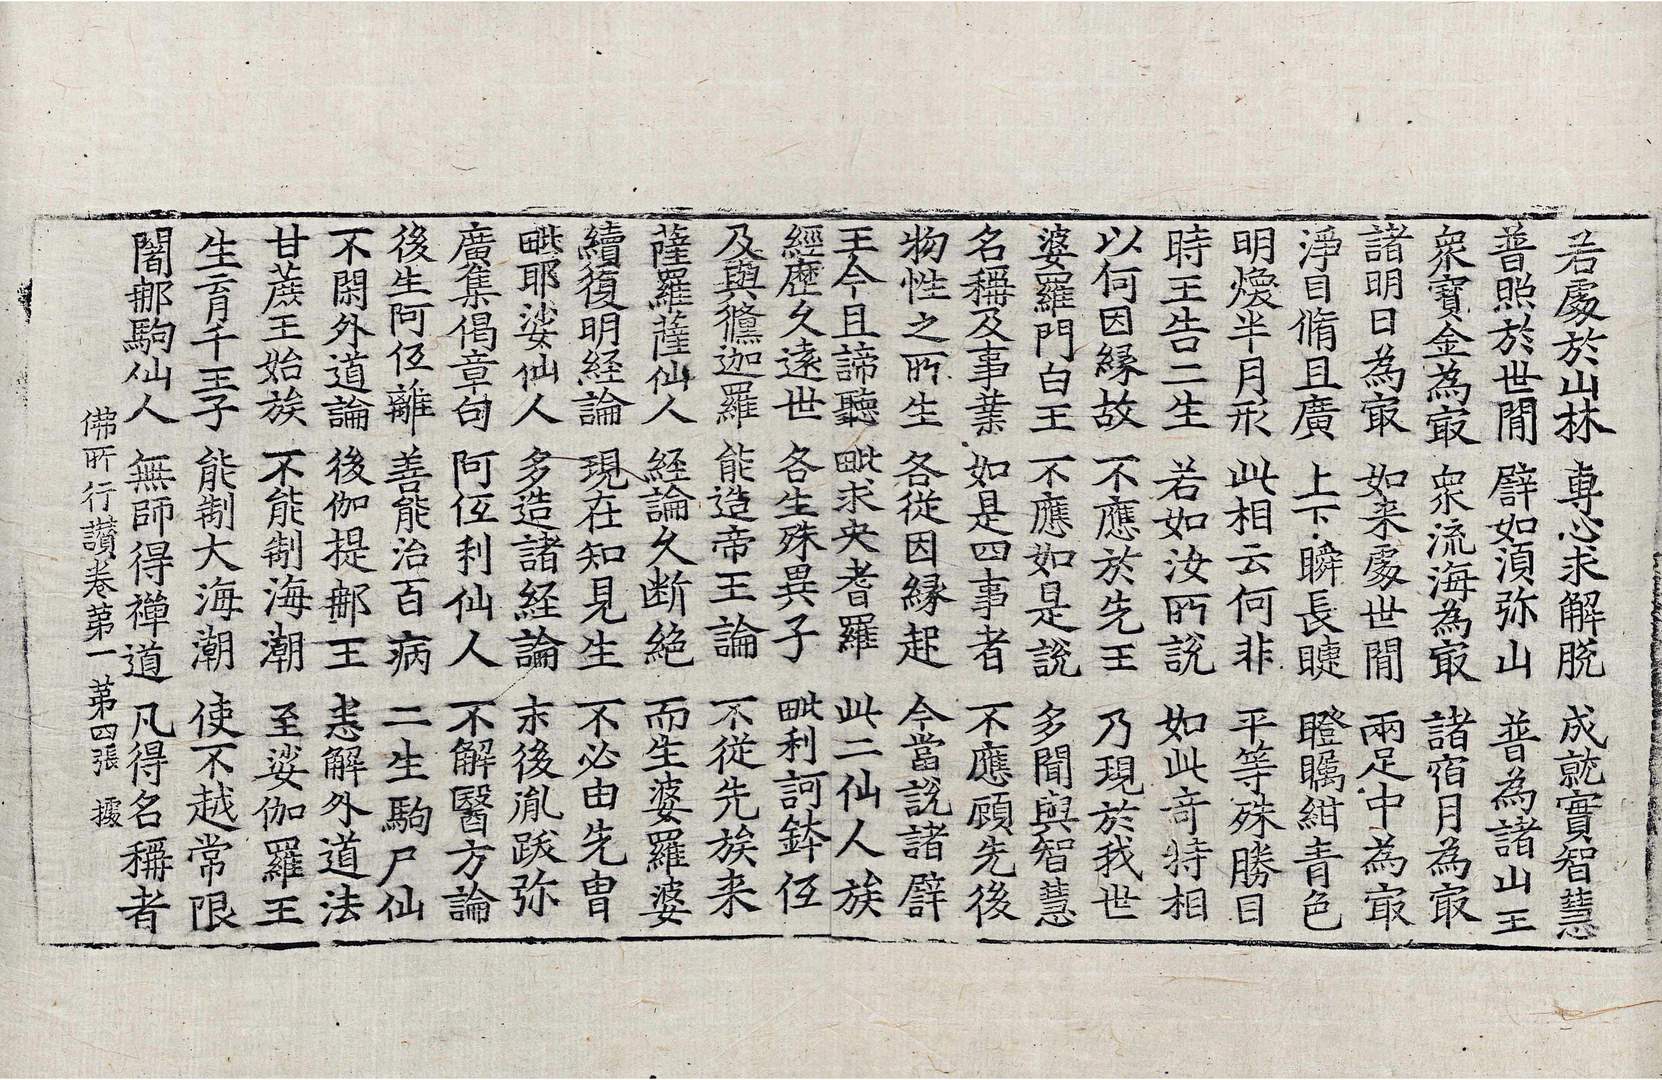 若處於山林 專心求解脫 成就實智慧
普照於世間 譬如須弥山 普為諸山王
衆寶金為㝡 衆流海為㝡 諸宿月為㝡
諸明日為㝡 如来處世間 兩足中為㝡
淨目脩且廣 上下瞬長睫 瞪矚紺青色
明煥半月形 此相云何非 平等殊勝目
時王告二生 若如汝所說 如此竒特相
以何因縁故 不應於先王 乃現於我世
婆羅門白王 不應如是說 多聞與智慧
名稱及事業 如是四事者 不應顧先後
物性之所生 各從因縁起 今當說諸譬
王今且諦聽 毗求央耆羅 此二仙人族
經歷久遠世 各生殊異子 毗利訶鉢低
及與儵迦羅 能造帝王論 不從先族来
薩羅薩仙人 經論久断絶 而生婆羅婆
續復明經論 現在知見生 不必由先冑
毗耶娑仙人 多造諸經論 末後胤跋弥
廣集偈章句 阿低利仙人 不解醫方論
後生阿低離 善能治百病 二生駒尸仙
不閑外道論 後伽提那王 悉解外道法
甘蔗王始族 不能制海潮 至娑伽羅王
生育千王子 能制大海潮 使不越常限
闍那駒仙人 無師得禪道 凡得名稱者
佛所行讚卷第一 第四張 據